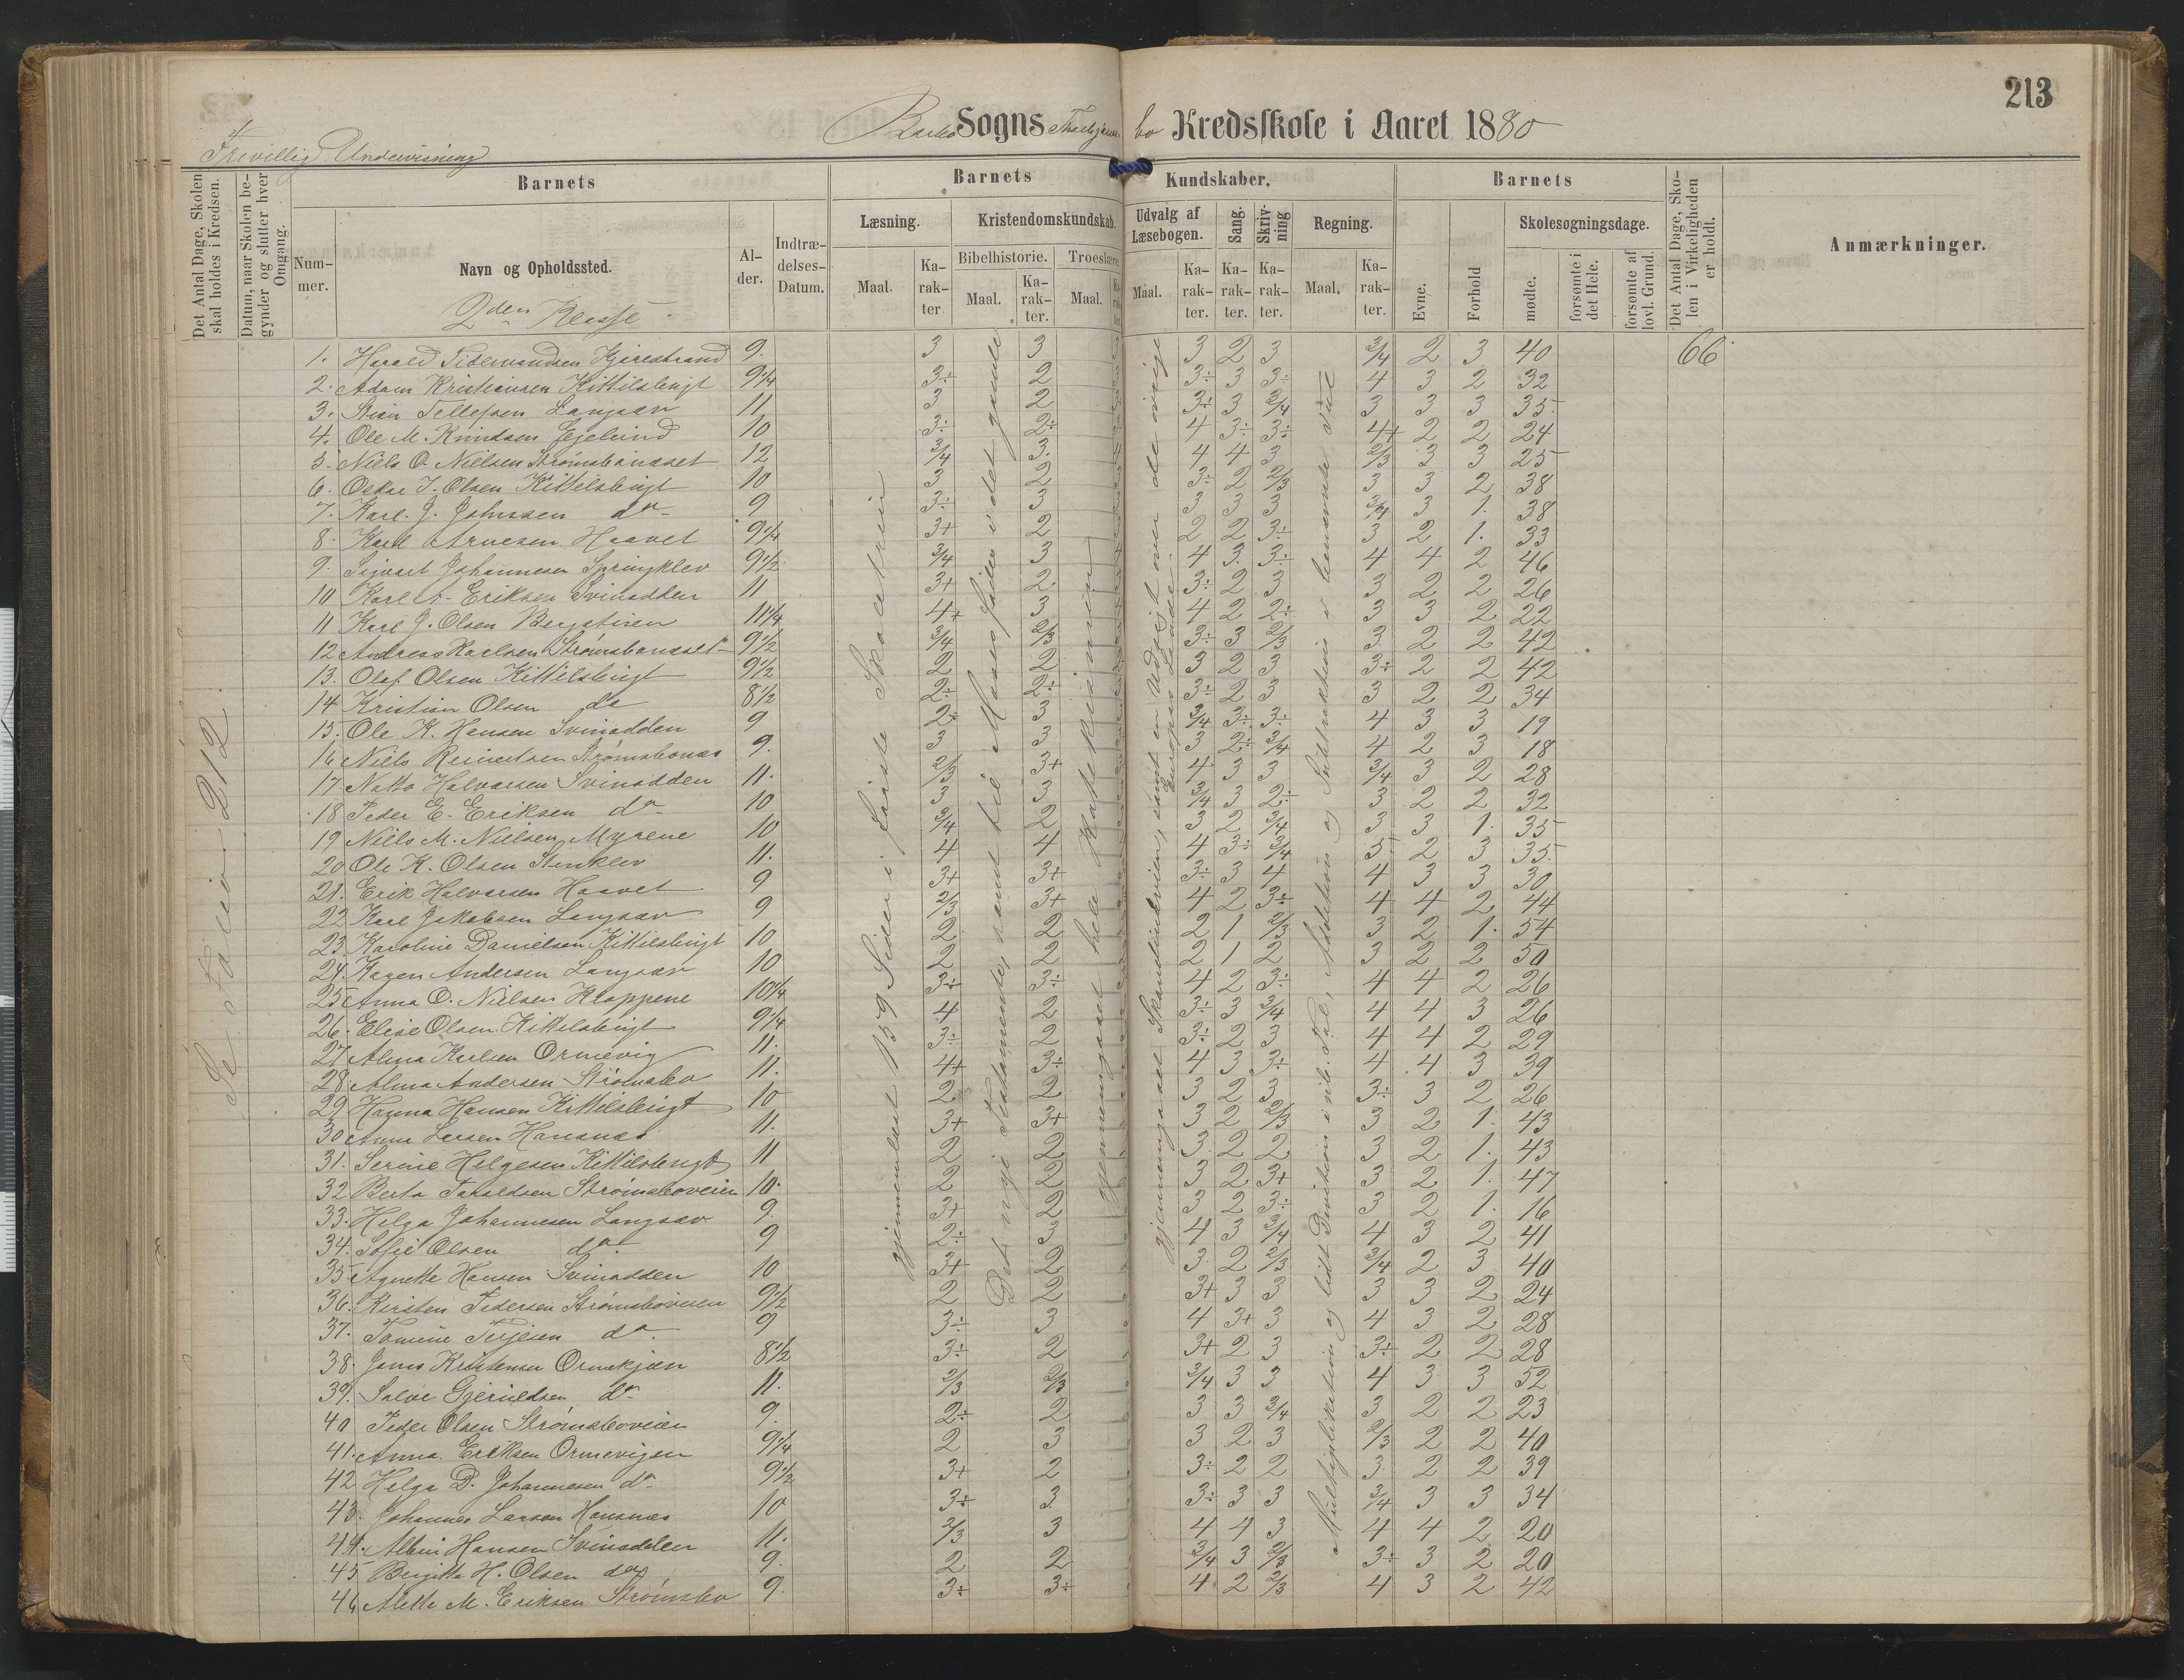 213
Barbo Sogns Thorbjørns bo Kredsskole i Aaret 1880
Frivillig Undervisning
Det Antal Dage, Skolen skal holdes i Kredsen.
Datum, naar Skolen begynder og slutter hver Omgang.
Barnets
Barnets Kundskaber.
Barnets
Det Antal Dage, Skolen i Virkeligheden er holdt.
Anmærkninger.
Nummer.
Navn og Opholdssted.
Alder.
Indtrædelses-Datum.
Læsning.
Kristendomskundskab.
Udvalg af Læsebogen.
Sang.
Skrivning
Regning.
Evne.
Forhold
Skolesøgningsdage.
Bibelhistorie.
Troeslære.
Maal.
Karakter.
mødte.
forsømte i det Hele.
forsømte af lovl. Grund.
2den Klasse
Se Folio 212.
gjennemlæst 159 Sider i Læste
Det nye Testamente, samt til Moses i det gamle
gjennemgaaet hele Katekismen
gjennemgaaet Skandinavien, samt en Udsigt over de øvrige Europas Lande
Multiplikation og lidt Division i reb. Tal, Addition og Subtraktion i benævnte Tal
1. Harald Tidemandsen Kjærestrand 9. 3 3 3 2 3 3/4 2 3 40 66
2. Adam Kristiansen Kittilsbugt 9 1/4 3÷ 2 3÷ 3 3÷ 4 3 2 32
3. Stian Tellefsen Langsæv 11 3 2 3÷ 3 3/4 3 3 3 35
4. Ole M. Knudsen 10 3÷ 2÷ 4 3÷ 3÷ 4+ 2 2 24
5. Niels O. Nielsen Strømsbonæset 12 3/4 3. 4 4 3 2/3 3 3 25
6. Oskar J. Olsen Kittelsbugt 10 3 2 3÷ 2 2/3 3 3 2 38
7. Karl. J. Johnsen do 9 3÷ 3 3 3 3 3/4 3 1. 38
8. Karl Arvesen Haavet 9 1/4 3+ 2 2 2 3÷ 3 2 1. 33
9. Sigvart Johannesen Springklev 9 1/2 3/4 3 4 3. 3÷ 4 4 2 46
10 Karl A. Eriksen Svinodden 11 3+ 2 3÷ 2 3 3 2 2 26
11 Karl J. Olsen Bergstien 11 1/4 4+ 3 4 2 2÷ 3 3 2 22
12 Andreas Karlsen Strømsbonæset 9 1/2 3/4 2/3 3÷ 3 2/3 3 2 2 42
13. Olaf Olsen Kittilsbugt 9 1/2 2 2 3 2 3 3÷ 2 2 42
14 Kristian Olsen do 8 1/2 2÷ 2÷ 3÷ 2 3 3 2 2 34
15. Ole K. Hansen Svinodden 9 2÷ 3 3/4 3÷ 3÷ 4 3 3 19
16 Niels Reinertsen Strømsbonæs 9. 3 3 3 2÷ 3/4 4 2 3 18
17 Natta Halvorsen Svinodden 11. 2/3 3+ 4 3 3 3/4 3 2 28
18 Peder E. Eriksen do 10 3 3 3/4 3 2÷ 3 2 2 32
19 Niels M. Nielsen Myrene 10 3/4 2 3 2 3/4 3 3 1. 35
20 Ole K. Olsen Stenklev 11. 4 4 4 3÷ 3/4 5 2 3 35
21. Erik Halvorsen Haavet 9 3+ 3+ 3÷ 3 4 4 3 3 30
22 Karl Jakobsen Langsæv 9 2/3 3+ 4 2 3÷ 4 4 2 44
23 Karoline Danielsen Kittilsbugt 10 2 2 2 1 2/3 3 2 1. 54
24. Kagen Andersen Langsæv 10 2 2 2 1 2 3 2 2 50
25 Anna O. Nielsen Kloppene 10 1/4 3÷ 3÷ 4 2 3÷ 4 4 2 26
26. Elise Olsen Kittelsbugt 9 1/4 4 2 3÷ 3 3/4 4 4 3 26
27 Alma Karlsen Ormevig 11. 3÷ 2 3÷ 2 3 4 4 2 29
28. Alma Andersen Strømsbo 11. 4+ 3÷ 4 3 3÷ 4 4 3 39
29 Hanna Hansen Kittilsbugt 10 2 2 3 2 3 3÷ 3 2 26
30 Anna Larsen Havsnæs 11. 3+ 3+ 3 2 2/3 3 2 1. 43
31. Serine Helgesen Kittilsbugt 11 2 2 3 2 2 3 2 1. 43
32 Berta Taraldsen Strømsboveien 10. 2 2 3 2 3+ 3 2 1. 47
33. Helga Johannesen Langsæv 9. 3+ 2 3 2 3÷ 3 2 1. 16
34. Sofie Olsen do 9 2÷ 3 4 3 3/4 4 3 2 41
35. Agnethe Hansen Svinodden 10 3+ 2 3. 2 2/3 3/4 2 3 40
36. Kirsten Pedersen Strømsboveien 9 1/2 2 2 3+ 3 3 3 3 2 24
37. Tomine Terjesen do 9 3÷ 3 4 3+ 3 4 3 2 28
38. Jens Kristensen Ormekjær 8 1/2 3÷ 2 3+ 2 3 3÷ 2 2 28
39. Salve Gjeruldsen do 11. 2/3 2/3 3/4 3 3 4 3 3 52
40 Peder Olsen Strømsboveien 9. 2÷ 2 3 3 3/4 3 2 2 23
41. Anna Eriksen Ormevigen 9 1/4 2 3 3 2 3 2/3 2 2 40
42 Helga D. Johannesen do 9 1/2 3+ 2 3÷ 2 2 3 2 2 39
43. Johannes Larsen Havsnæs 10 3÷ 3 3÷ 3 3 3/4 3 3 34
44. Albin Hansen Svinodden 11. 2/3 3 4 4 3 4 4 2 20
45 Birgitte H. Olsen do 9. 2 2 3/4 3 2/3 3÷ 3 2 20
46 Alette M. Eriksen Strømsbo 9. 3÷ 3÷ 4 2 2/3 4 3 2 42